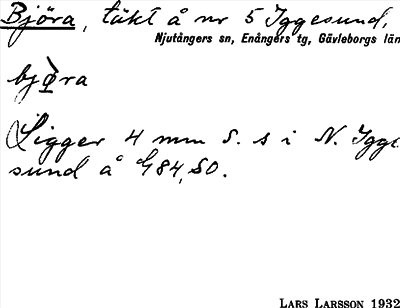 Björa, täkt å nr 5 Iggesund,
Njutångers sn, Enångers tg, Gävleborgs län
bjøra
Ligger 4 mm S. s i N. Igge
sund å G84, SO.
LARS LARSSON 1932